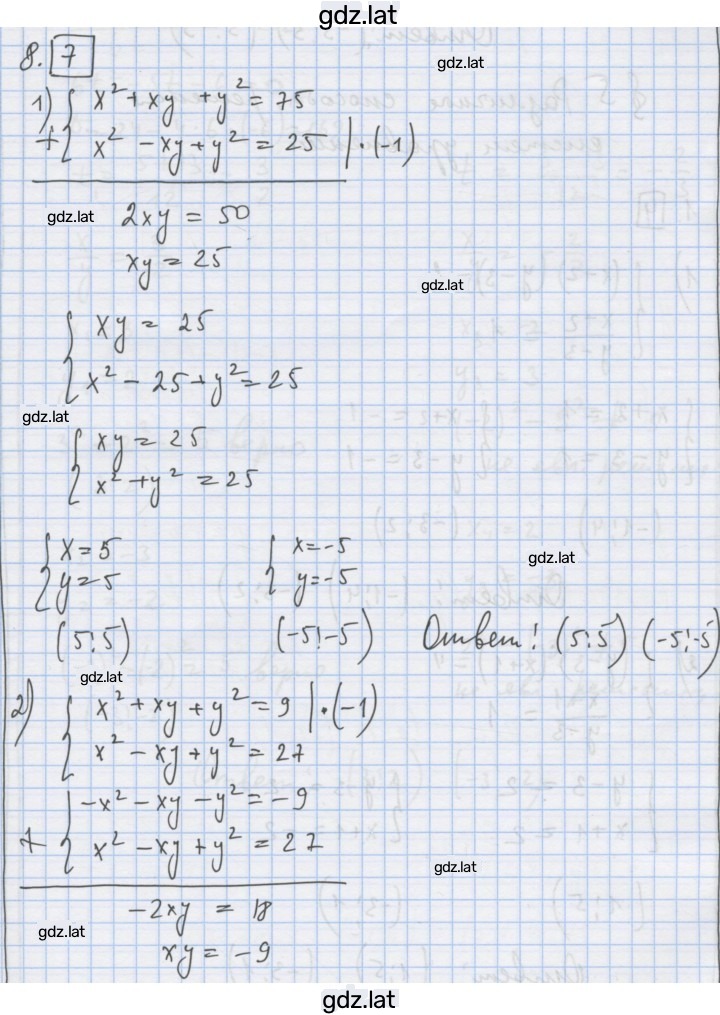 gdz.lat
8. 7
gdz.lat
1) { x² + xy + y² = 75
+ { x² - xy + y² = 25 | · (-1)
gdz.lat
2xy = 50
xy = 25
gdz.lat
{ xy = 25
{ x² - 25 + y² = 25
gdz.lat
{ xy = 25
{ x² + y² = 25
{ x = 5 { x = -5
gdz.lat
{ y = 5 { y = -5
(5; 5) (-5; -5) Ответ: (5; 5) (-5; -5)
gdz.lat
2) { x² + xy + y² = 9 | · (-1)
{ x² - xy + y² = 27
{ -x² - xy - y² = -9
+ { x² - xy + y² = 27
gdz.lat
-2xy = 18
gdz.lat
xy = -9
gdz.lat